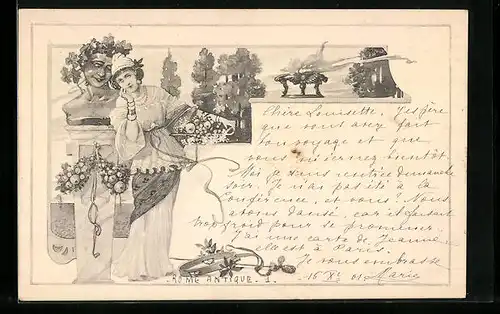 Chère Louisette. J'espère
que vous avez fait
bon voyage et que
vous m'écrirez bientôt.
Moi je suis rentrée dimanche
soir. Je n'ai pas été à la
conférence, et vous? Nous
avons dansé, car il faisait
trop froid pour se promener.
J'ai une carte de Jeanne
elle est à Paris.
Je vous embrasse
16 XI 01 Marie
ROME ANTIQUE. 1.